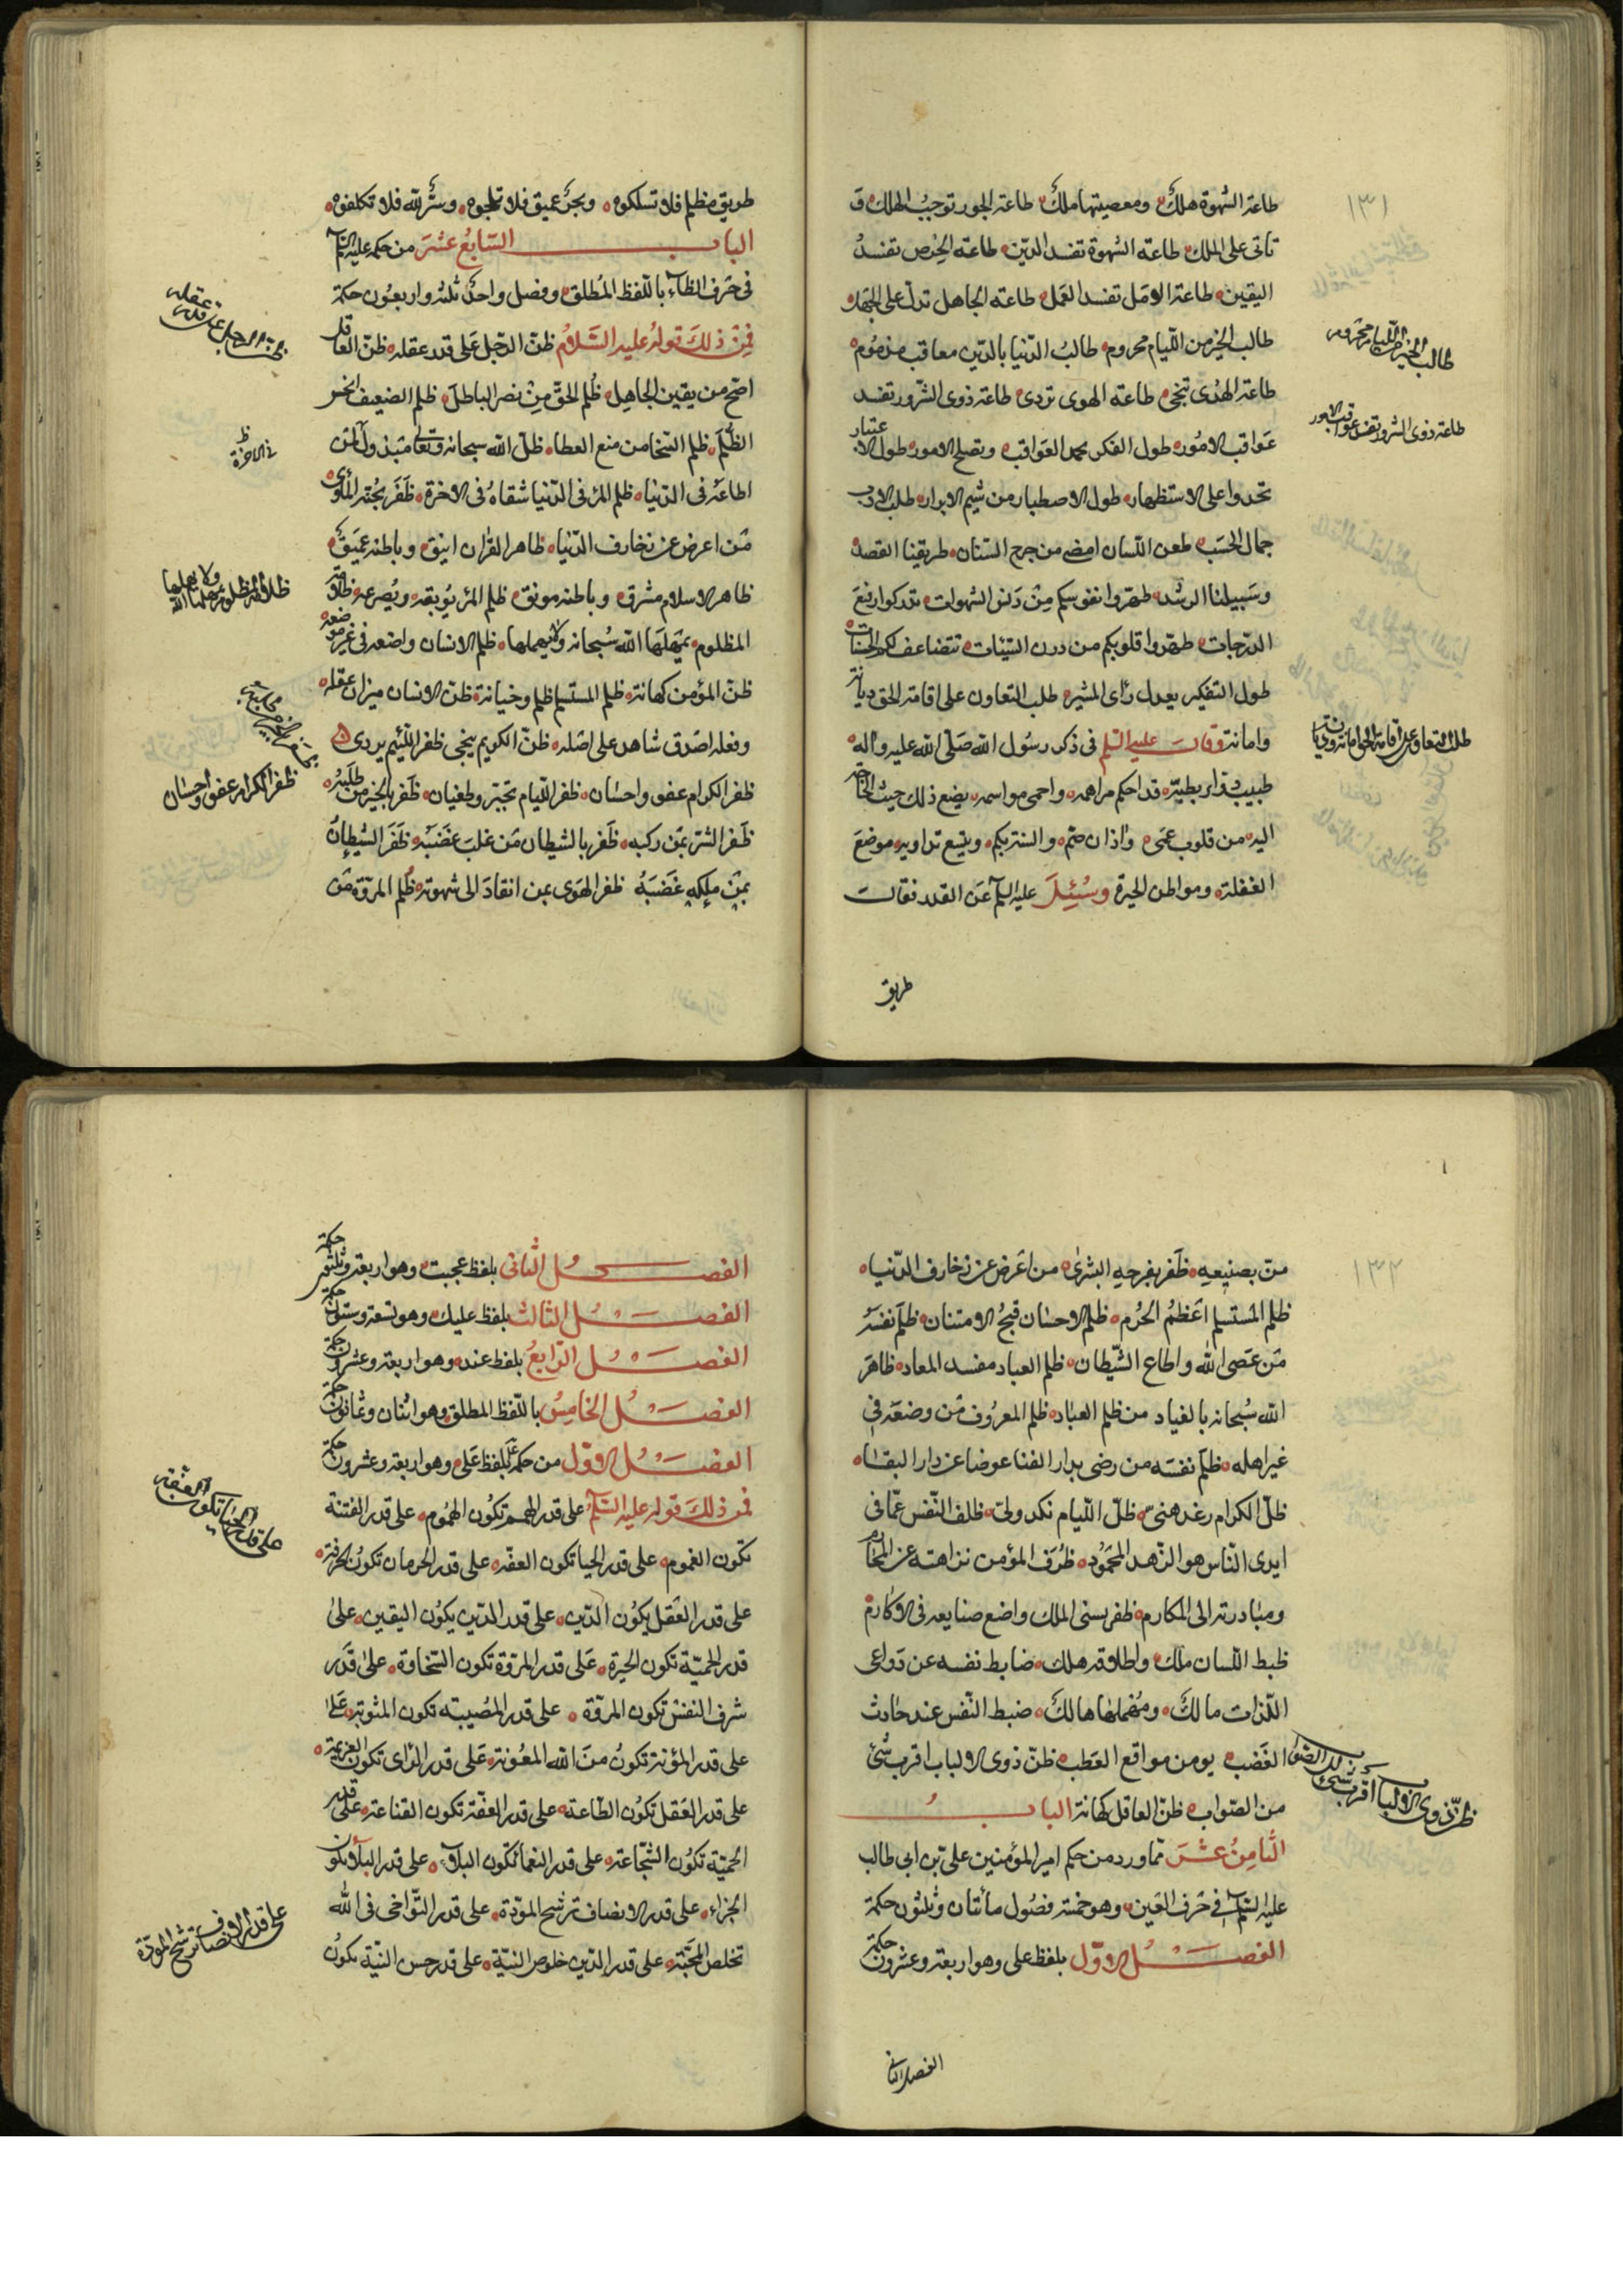 ١٣١
طاعة الشهوة هلك ومعصيتها ملك طاعة الجور توجب الهلك و
تاتى على الملك طاعة الشهوة تفسد الدين طاعة الحرص تفسد
اليقين طاعة الامل تفسد العمل طاعة الجاهل تدل على الجهل
طالب الخير من اللئام محروم طالب الدنيا بالدين معاقب مذموم
طاعة الهدى تنجى طاعة الهوى تردى طاعة ذوى الشرور تفسد
عواقب الامور طول الفكر يحمد العواقب ويصلح الامور طول الاعتبار
تحدوا على الاستظهار طول الاصطبار من شيم الابرار طلب الادب
جمال الحسب طعن اللسان امضى من جرح السنان طريقنا القصد
وسبيلنا الرشد طهروا انفسكم من دنس الشهوات تدركوا رفيع
الدرجات طهروا قلوبكم من درن السيئات تتضاعف لكم الحسنات
طول التفكير يعدل رأى المشير طلب التعاون على اقامة الحق ديانة
وامانة وقال عليه السلم فى ذكر رسول الله صلى الله عليه واله
طبيب دوار بطبه قد احكم مراهمه واحمى مواسمه يضع ذلك حيث الحاجة
اليه من قلوب عمى واذان صم والسنة بكم ويتبع بدوايه موضع
الغفلة ومواطن الحيرة وسئل عليه السلم عن القدر فقال
طريق
طالب الخير من اللئام محروم
طاعة ذوى الشرور تفسد عواقب الامور
طلب التعاون على اقامة الحق امانة وديانة
طريق مظلم فلا تسلكوه وبحر عميق فلا تلجوه وسر الله فلا تكلفوه
الباب السابع عشر من حكمه عليه السلم
فى حرف الظاء باللفظ المطلق وفصل واحد ثلثة واربعون حكمة
فمن ذلك قوله عليه السلام ظن الرجل على قدر عقله ظن العاقل
اصح من يقين الجاهل ظلم الحق من نصر الباطل ظلم الضعيف افحش
الظلم ظلم السخا من منع العطا ظل الله سبحانه وتعالى مبذول لمن
اطاعه فى الدنيا ظلم المرء فى الدنيا شقاه فى الاخرة ظفر بجنة المأوى
من اعرض عن زخارف الدنيا ظاهر القران انيق وباطنه عميق
ظاهر الاسلام مشرق وباطنه مونق ظلم المرء يوبقه ويصرعه ظلامة
المظلوم يمهلها الله سبحانه ولا يهملها ظلم الانسان واضعه فى غير موضعه
ظن المؤمن كهانة ظلم المستسلم ظلم وخيانة ظن الانسان ميزان عقله
وفعله اصدق شاهد على اصله ظن الكريم ينجى ظفر اللئيم يردى
ظفر الكرام عفو واحسان ظفر اللئام تجبر وطغيان ظفر بالخير من طلبه
ظفر الشر بمن ركبه ظفر بالشيطان من غلب غضبه ظفر الشيطان
بمن ملكه غضبه ظفر الهوى بمن انقاد الى شهوته ظلم المروة من
ظن الرجل على قدر عقله
فى الاخرة
ظلامة المظلوم يمهلها الله ولا يهملها
ظفر الكرام عفو واحسان
١٣٢
من بصنيعه ظفر بفرحة البشرى من اعرض عن زخارف الدنيا
ظلم المستسلم اعظم الجرم ظلم الاحسان قبح الامتنان ظلم نفسه
من عصى الله واطاع الشيطان ظلم العباد مفسد المعاد ظاهر
الله سبحانه بالعناد من ظلم العباد ظلم المعروف من وضعه فى
غير اهله ظلم نفسه من رضى بدار الفنا عوضا عن دار البقاء
ظل الكرام رغد هنى ظل اللئام نكد وبى ظلف النفس عما فى
ايدى الناس هو الزهد المحمود ظرف المؤمن نزاهته عن المحارم
ومبادرته الى المكارم ظفر بسنى الملك واضع صنايعه فى الاكارم
ظبط اللسان ملك واطلاقه هلك ضابط نفسه عن دواعى
اللذات مالك ومهملها هالك ضبط النفس عند حادث
الغضب يومن مواقع العطب ظن ذوى الالباب اقرب شئ
من الصواب ظن العاقل كهانة الباب
الثامن عشر مما ورد من حكم امير المؤمنين على بن ابى طالب
عليه السلم فى حرف العين وهو خمسة فصول مأتان وثلثون حكمة
الفصل الاول بلفظ على وهو اربعة وعشرون حكمة
الفصل الثانى
ظن ذوى الالباب اقرب شئ من الصواب
الفصل الثانى بلفظ عجبت وهو اربعة وثلثون حكمة
الفصل الثالث بلفظ عليك وهو تسعة وستون حكمة
الفصل الرابع بلفظ عند وهو اربعة وعشرون حكمة
الفصل الخامس باللفظ المطلق وهو اثنان وثمانون حكمة
الفصل الاول من حكمه بلفظ على وهو اربعة وعشرون حكمة
فمن ذلك قوله عليه السلم على قدر الهمم تكون الهموم على قدر الفتنة
تكون الغموم على قدر الحيا تكون العفة على قدر الحرمان تكون الحرفة
على قدر العقل يكون الدين على قدر الدين يكون اليقين على
قدر الحمية تكون الغيرة على قدر المروة تكون السخاوة على قدر
شرف النفس تكون المروة على قدر المصيبة تكون المثوبة على
على قدر المؤنة تكون من الله المعونة على قدر الراى تكون العزيمة
على قدر العقل تكون الطاعة على قدر العفة تكون القناعة على قدر
الحمية تكون الشجاعة على قدر النعما تكون البلاء على قدر البلاء تكون
الجزاء على قدر الانصاف ترسخ المودة على قدر التواخى فى الله
تخلص المحبة على قدر الدين خلوص النية على قدر حسن النية تكون
على قدر الحياء تكون العفة
على قدر الانصاف ترسخ المودة